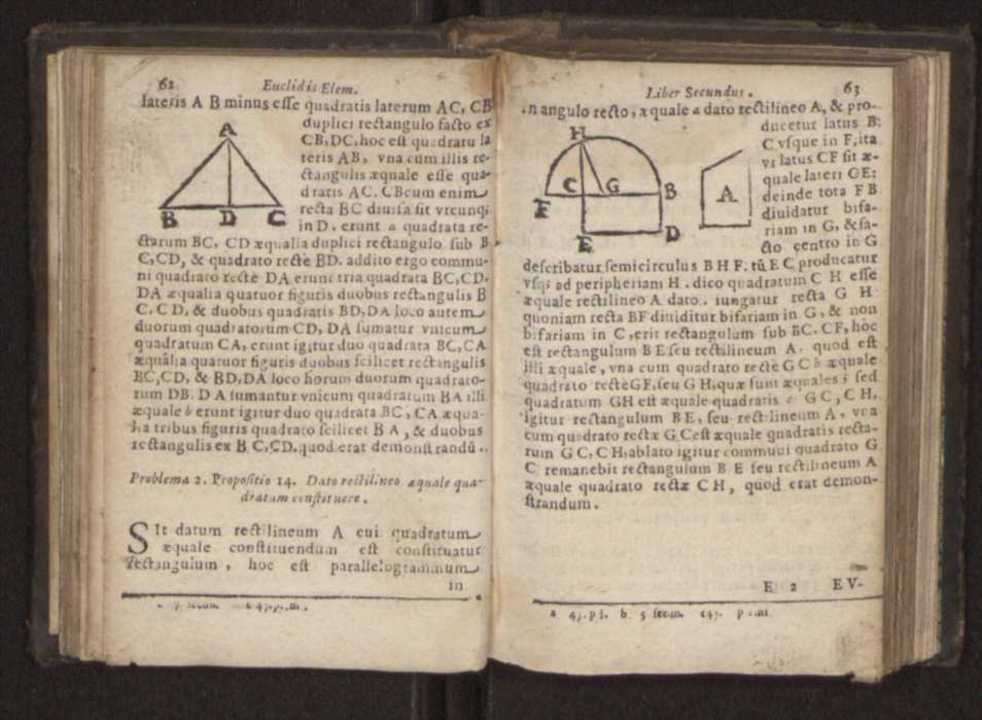 62 Euclidis Elem.
lateris A B minus esse quadratis laterum AC, CB
duplici rectangulo facto ex
CB, DC, hoc est quadratũ la
teris AB, vna cum illis re-
ctangulis æquale esse qua-
dratis AC. CB cum enim
recta BC diuisa sit vtcunq;
in D. erunt a quadrata re-
ctarum BC, CD æqualia duplici rectangulo sub B
C, CD, & quadrato rectè BD. addito ergo commu-
ni quadrato rectè DA erunt tria quadrata BC, CD,
DA æqualia quatuor figuris duobus rectangulis B
C. C D, & duobus quadratis BD, DA loco autem
duorum quadratorum CD, DA sumatur vnicum
quadratum CA, erunt igitur duo quadrata BC, CA
æqualia quatuor figuris duobus scilicet rectangulis
BC, CD, & BD, DA loco horum duorum quadrato-
rum DB. D A sumantur vnicum quadratum BA illi
æquale b erunt igitur duo quadrata BC, CA æqua-
lia tribus figuris quadrato scilicet B A, & duobus
rectangulis ex B C, CD. quod erat demonstrandũ.
A
B D C
Problema 2. Propositio 14. Dato rectilineo æquale qua-
dratum constituere.
SIt datum rectilineum A cui quadratum
æquale constituendum est constituatur
rectangulum, hoc est parallelogrammum
in
Liber Secundus. 63
in angulo recto, æquale a dato rectilineo A, & pro-
ducetur latus B:
C vsque in F, ita
vt latus CF sit æ-
quale lateri CE:
deinde tota F B
diuidatur bifa-
riam in G, & fa-
cto centro in G
describatur semicirculus B H F. tũ E C producatur
vsq; ad peripheriam H. dico quadratum C H esse
æquale rectilineo A dato. iungatur recta G H
quoniam recta BF diuiditur bifariam in G, & non
bifariam in C, erit rectangulum sub BC. CF, hoc
est rectangulum B E seu rectilineum A, quod est
illi æquale, vna cum quadrato rectè G C b æquale
quadrato rectè GF, seu G H, quæ sunt æquales; sed
quadratum GH est æquale quadratis c GC, CH,
igitur rectangulum BE, seu rectilineum A, vna
cum quadrato rectæ G C est æquale quadratis recta-
rum G C, C H, ablato igitur communi quadrato G
C remanebit rectangulum B E seu rectilineum A
æquale quadrato rectæ CH, quod erat demon-
strandum.
H
F C G B
E D
A
E 2 EV-
a 45. p i. b 5 secun. c 47.